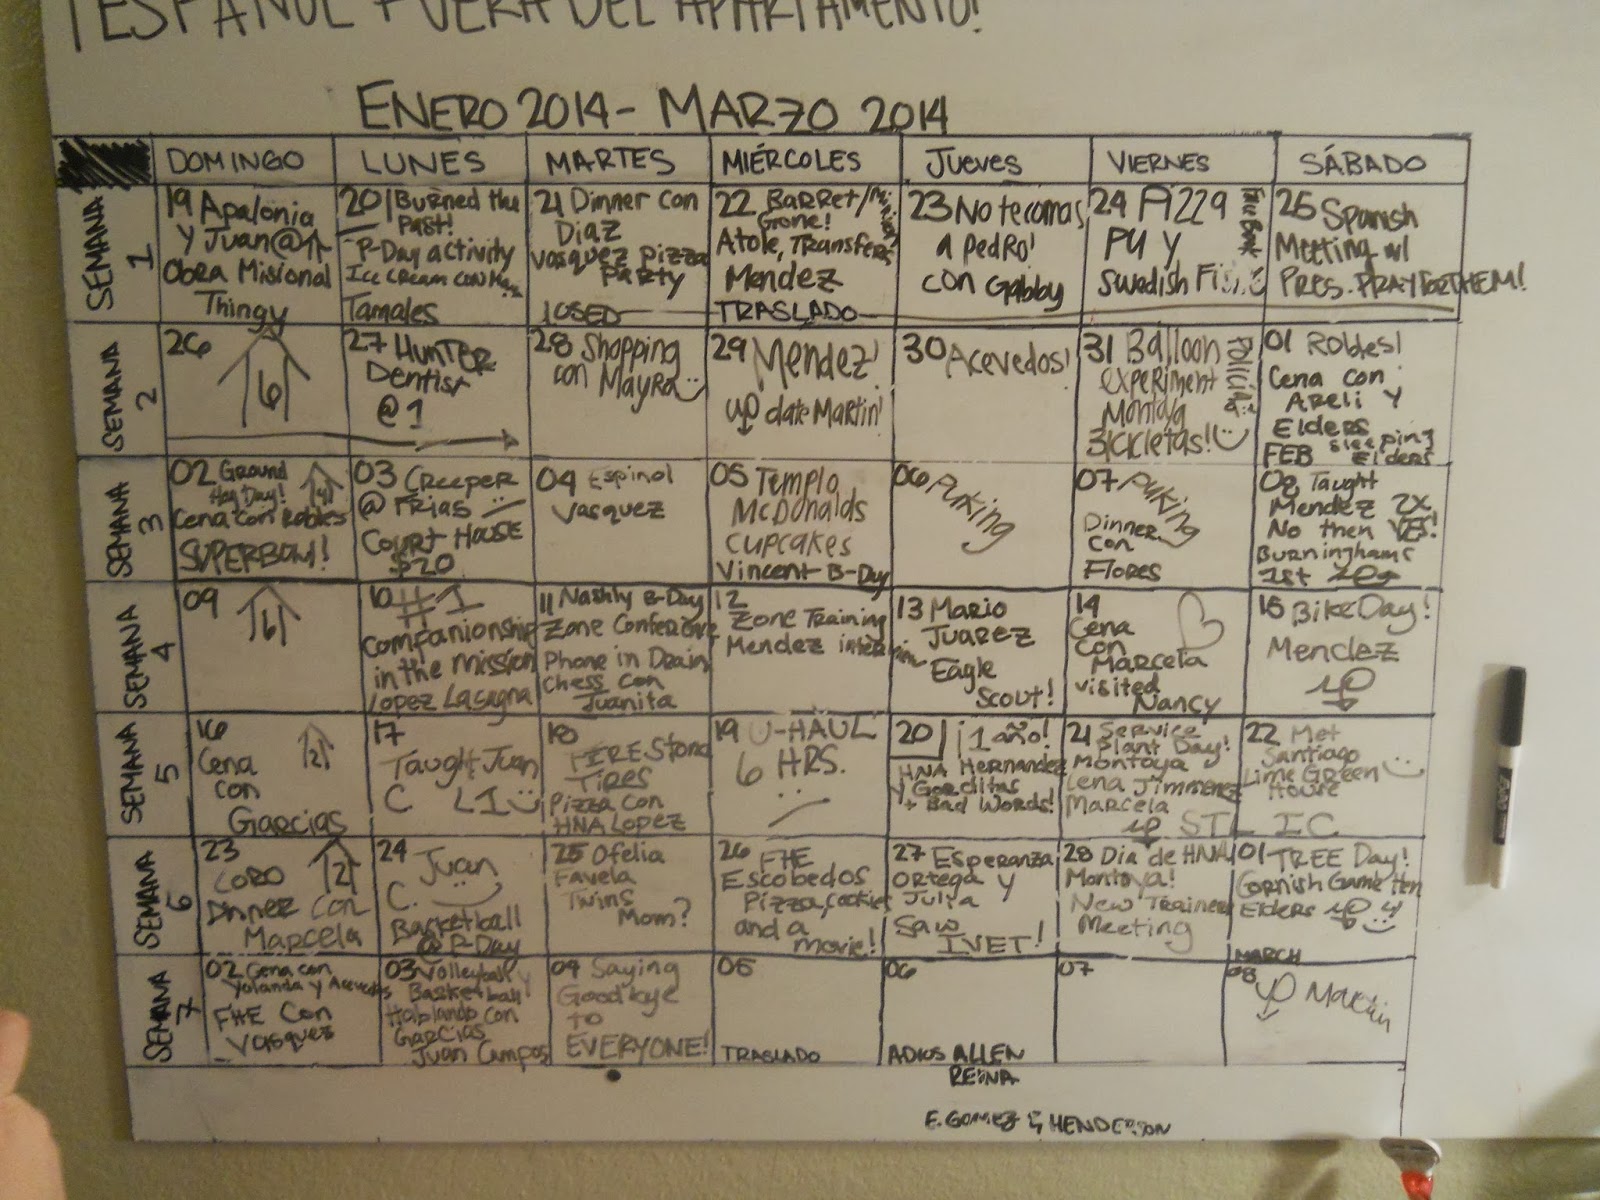 ¡ESPAÑOL FUERA DEL APARTAMENTO!
ENERO 2014 - MARZO 2014
DOMINGO LUNES MARTES MIÉRCOLES JUEVES VIERNES SÁBADO
SEMANA 1
19 Apalonia
y Juan @
Obra Misional
Thingy
20 Burned the
Past!
P-Day activity
Ice cream con
Tamales
21 Dinner con
Diaz
Vasquez Pizza
Party
22 Barret/
Grone!
Atole, Transfers
Mendez
TRASLADO
23 No te comas
a Pedro!
con Gabby
24 Pizza
PU y
Swedish
25 Spanish
Meeting w/
Pres. PRAY FOR THEM!
SEMANA 2
26
6
27 HUNTER
Dentist
@ 1
28 Shopping
con Mayra
29 Mendez!
date Martin!
30 Acevedos!
31 Balloon
experiment
Montoya
Bicicletas!
POLICIA
01 Robles!
Cena con
Areli y
Elders
sleeping
FEB Elders
SEMANA 3
02 Ground
Hog Day!
4
Cena con Robles
SUPERBOWL!
03 Creeper
@ Frias
Court House
$20
04 Espinol
Vasquez
05 Templo
McDonalds
cupcakes
Vincent B-Day
06 Puking
07 Puking
Dinner
con
Flores
08 Taught
Mendez 2x
No then YES!
Burninghams
1st
SEMANA 4
09
6
10 #1
companionship
in the mission
Lopez Lasagna
11 Nashly B-Day
Zone Conference
Phone in Drain
Chess con
Juanita
12
Zone Training
Mendez
13 Mario
Juarez
Eagle
Scout!
14
Cena
con
Marcela
visited
Nancy
15 Bike Day!
Mendez
SEMANA 5
16
2
Cena
con
Garcias
17
Taught Juan
C. L1
18
FIRESTone
Tires
Pizza con
HNA Lopez
19 U-HAUL
6 HRS.
20 ¡1 año!
HNA Hernandez
y Gorditas
+ Bad Words!
21 Service
Plant Day!
Montoya
Cena Jimmenez
Marcela
22 Met
Santiago
Lime Green
House
SEMANA 6
23
CORO 2
Dinner con
Marcela
24 Juan
C.
Basketball
@ P-Day
25 Ofelia
Favela
Twins
Mom?
26 FHE
Escobedos
Pizza, cookies
and a
movie!
27 Esperanza
Ortega y
Julia
Saw
IVET!
28 Dia de HNA
Montoya!
New Trainer
Meeting
01 TREE Day!
Cornish Game Hen
Elders
MARCH
SEMANA 7
02 Cena con
Yolanda y Acevedos
FHE Con
Vasquez
03 Volleyball y
Basketball
Hablando con
Garcias
Juan Campos
04 Saying
Goodbye
to
EVERYONE!
05
TRASLADO
06
ADIOS ALLEN
REINA
07
08
Martin
E. GOMEZ & HENDERSON
EXPO